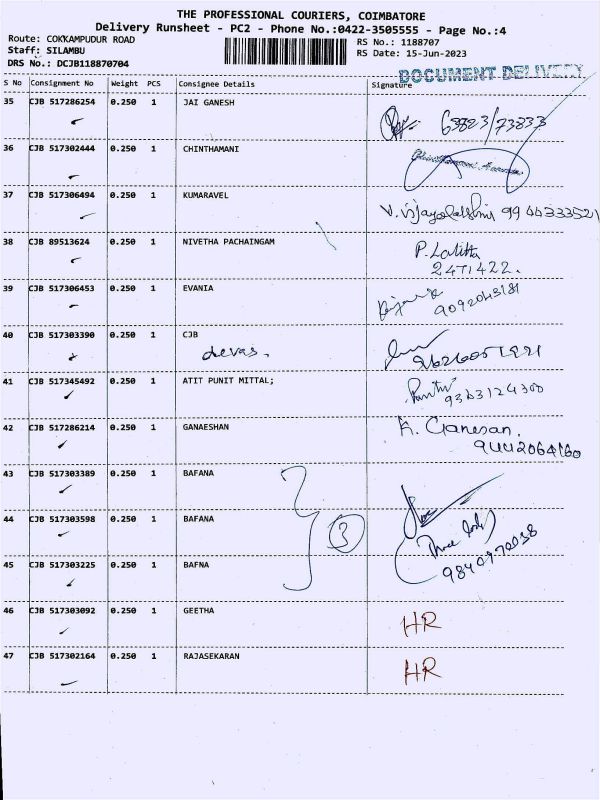 THE PROFESSIONAL COURIERS, COIMBATORE
Delivery Runsheet - PC2 - Phone No.:0422-3505555 - Page No.:4
Route: COKKAMPUDUR ROAD
RS No.: 1188707
Staff: SILAMBU
RS Date: 15-Jun-2023
DRS No.: DCJB118870704
DOCUMENT DELIVERY
S No Consignment No Weight PCS Consignee Details Signature
35 CJB 517286254 0.250 1 JAI GANESH 63823/73833
36 CJB 517302444 0.250 1 CHINTHAMANI
37 CJB 517306494 0.250 1 KUMARAVEL V. Vijayalakshmi 9944333521
38 CJB 89513624 0.250 1 NIVETHA PACHAINGAM P. Lalitha
2471422.
39 CJB 517306453 0.250 1 EVANIA 9092043181
40 CJB 517303390 0.250 1 CJB
devas.
41 CJB 517345492 0.250 1 ATIT PUNIT MITTAL;
9363124300
42 CJB 517286214 0.250 1 GANAESHAN K. Ganesan.
9442064160
43 CJB 517303389 0.250 1 BAFANA
44 CJB 517303598 0.250 1 BAFANA 3
45 CJB 517303225 0.250 1 BAFNA
46 CJB 517303092 0.250 1 GEETHA HR
47 CJB 517302164 0.250 1 RAJASEKARAN HR